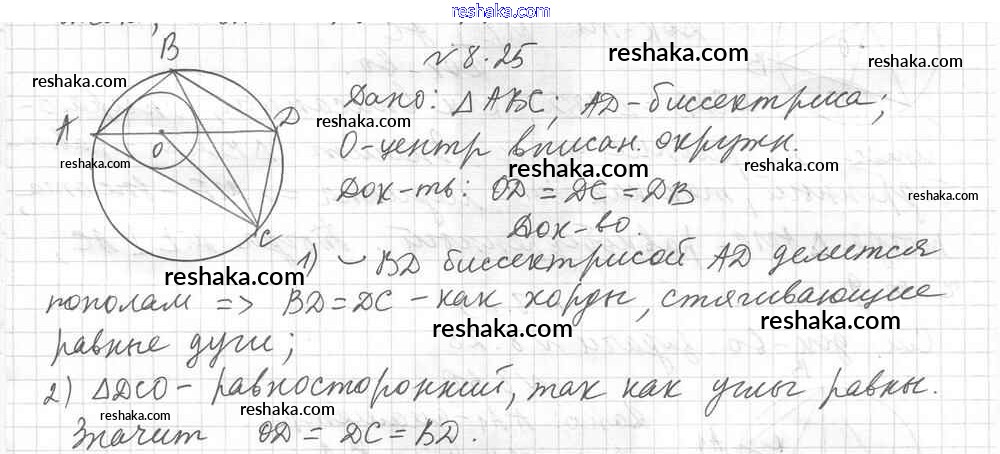 reshaka.com
N 8.25
reshaka.com
reshaka.com
reshaka.com
B
Дано: △ABC; AD-биссектриса;
reshaka.com
A
D
O-центр вписан. окружн.
reshaka.com
O
reshaka.com
reshaka.com
Док-ть: OD = DC = DB
reshaka.com
C
Док-во.
1) ◡ BD биссектрисой AD делется
reshaka.com
пополам => BD = DC - как хорды, стягивающие
reshaka.com
reshaka.com
равные дуги;
2) △DCO - равносторонний, так как углы равны.
reshaka.com
reshaka.com
reshaka.com
Значит OD = DC = BD.
reshaka.com